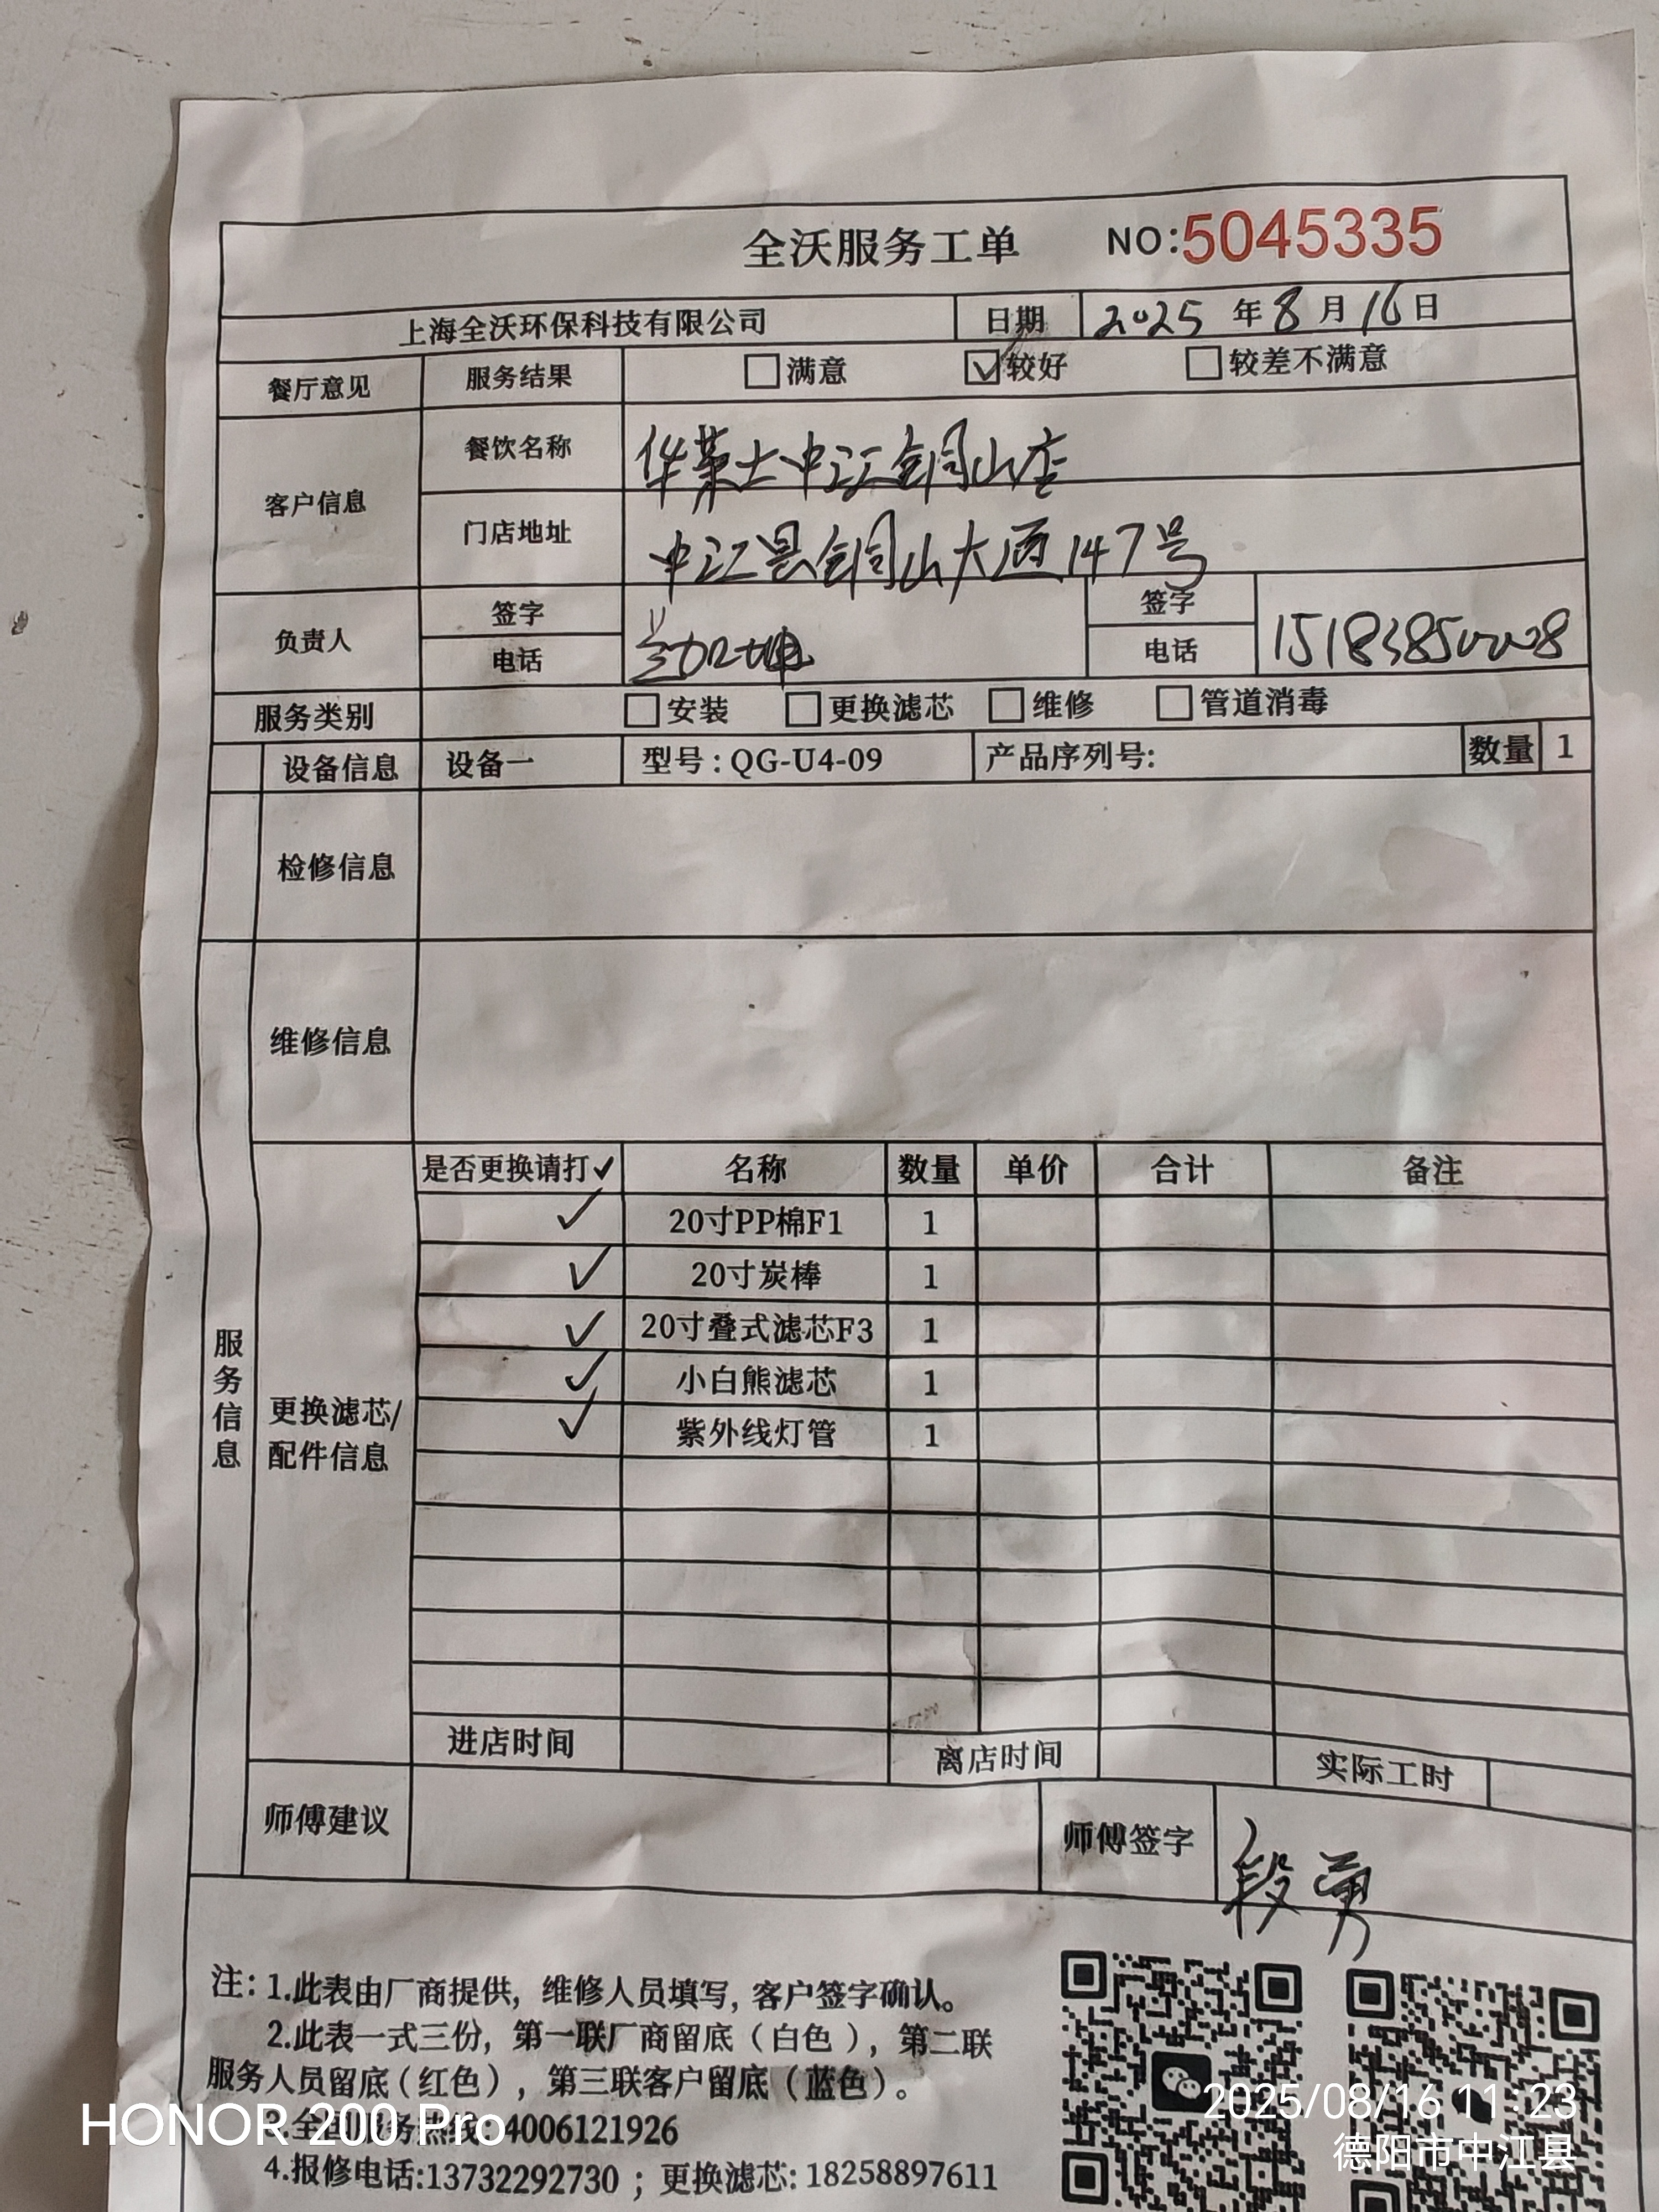 全沃服务工单 NO:5045335
上海全沃环保科技有限公司 日期 2025 年 8 月 16 日
餐厅意见 服务结果 □满意 ☑较好 □较差不满意
客户信息 餐饮名称 华莱士中江铜山店
门店地址 中江县铜山大酒147号
负责人 签字 签字
电话 电话
服务类别 □安装 □更换滤芯 □维修 □管道消毒
设备信息 设备一 型号:QG-U4-09 产品序列号: 数量 1
检修信息
维修信息
服务信息
更换滤芯/
配件信息
是否更换请打✓ 名称 数量 单价 合计 备注
✓ 20寸PP棉F1 1
✓ 20寸炭棒 1
✓ 20寸叠式滤芯F3 1
✓ 小白熊滤芯 1
✓ 紫外线灯管 1
进店时间 离店时间 实际工时
师傅建议 师傅签字 段勇
注:1.此表由厂商提供,维修人员填写,客户签字确认。
2.此表一式三份,第一联厂商留底(白色),第二联
服务人员留底(红色),第三联客户留底(蓝色)。
3.全国服务热线:4006121926
4.报修电话:13732292730;更换滤芯:18258897611
HONOR 200 Pro
2025/08/16 11:23
德阳市中江县